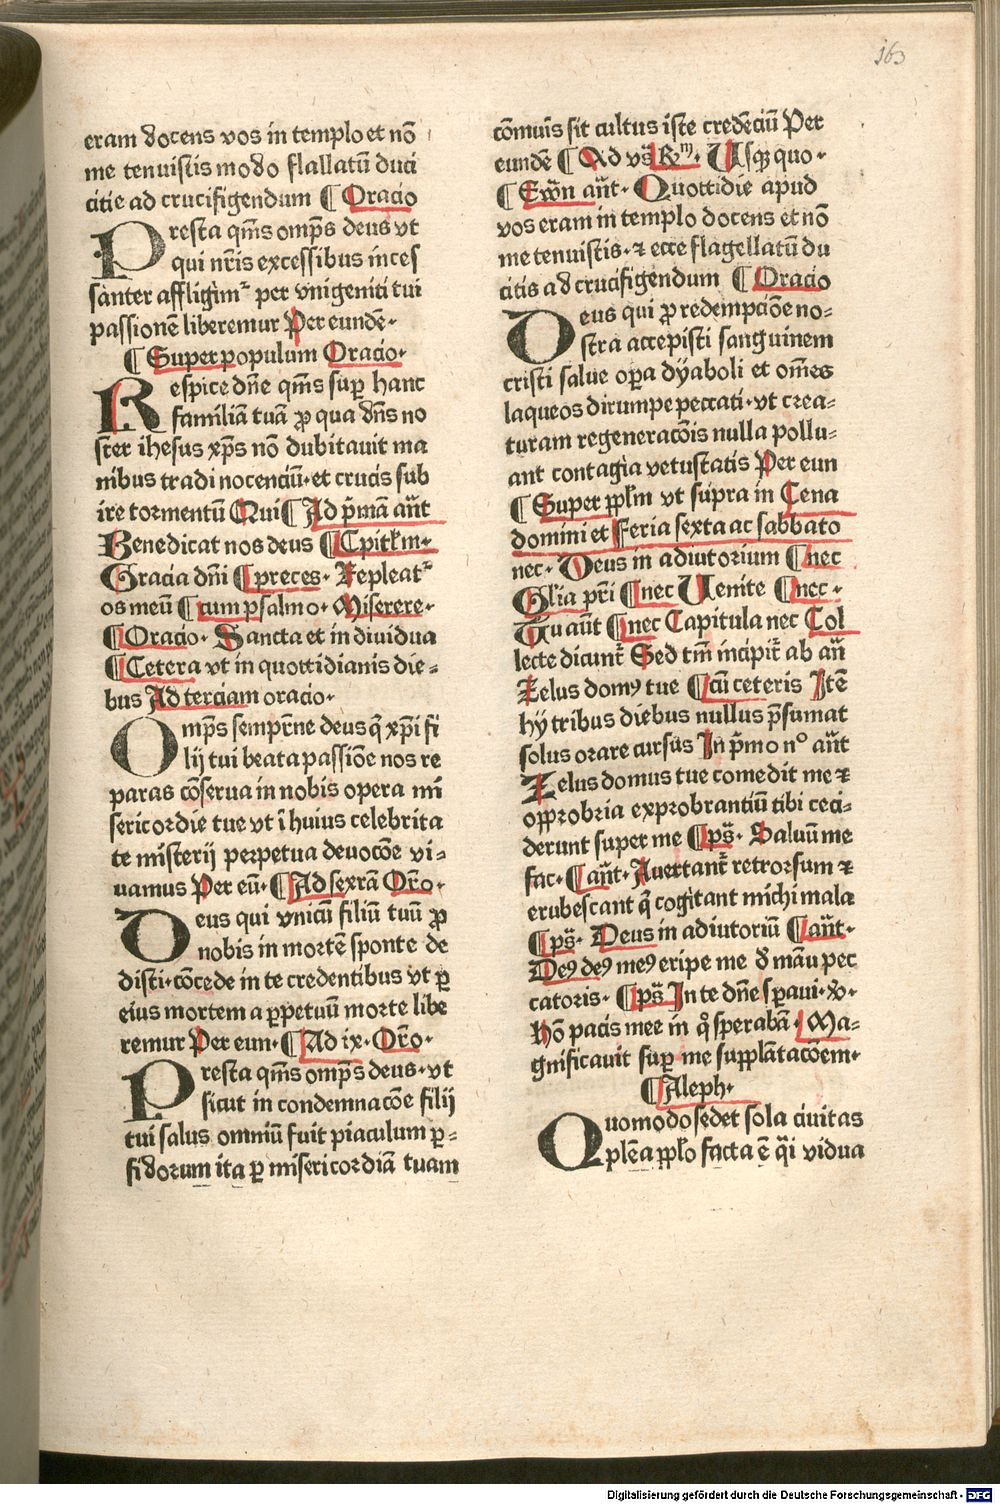 163
eram docens vos in templo et nō
me tenuistis modo flallatū duci
citie ad crucifigendum ¶ Oracio
Presta qm̄s omp̄s deus vt
qui nr̄is excessibus inces
santer affligimꝛ per vnigeniti tui
passionē liberemur Per eundē·
¶ Super populum Oracio·
Respice dn̄e qm̄s suꝑ hanc
familiā tuā ꝓ qua dn̄s no
ster ihesus xp̄s nō dubitauit ma
nibus tradi nocenciū·et crucis sub
ire tormentū Qui ¶ Ad p̄mā an̄t
Benedicat nos deus ¶ Cpitl̄m·
Gracia dn̄i ¶ preces· Repleatꝛ
os meū ¶ cum psalmo· Miserere·
¶ Oracio· Sancta et indiuidua
¶ Cetera vt in quottidianis die⸗
bus Ad terciam oracio·
Omp̄s semprn̄e deus q̄ xp̄i fi
lij tui beata passiōe nos re
paras cōserua in nobis opera mi
sericordie tue vt ī huius celebrita
te misterij perpetua deuocōe vi⸗
uamus Per eū· ¶ Ad sextā Or̄o·
Deus qui vnicū filiū tuū ꝓ
nobis in mortē sponte de
disti·cōcede in te credentibus vt ꝑ
eius mortem a ꝑpetuū morte libe
remur Per eum· ¶ Ad ix· Or̄o·
Presta qm̄s omp̄s deus·vt
sicut in condemnacōe filij
tui salus omniū fuit piaculum ꝑ⸗
fidorum ita ꝑ misericordiā tuam
cōmuīs sit cultus iste credēciū Per
eundē ¶ Ad vs̄ Rm· Usqꝫ quo·
¶ Ewn̄ an̄t· Quottidie apud
vos eram in templo docens et nō
me tenuistis·ꝛ ecce flagellatū du
citis ad crucifigendum ¶ Oracio
Deus qui ꝓ redempciōe no⸗
stra accepisti sanguinem
cristi salue oꝑa dyaboli et om̄es
laqueos dirumpe peccati·vt crea⸗
turam regeneracōis nulla pollu⸗
ant contagia vetustatis Per eun
¶ Super ppl̄m vt supra in Cena
domini et Feria sexta ac sabbato
nec· Deus in adiutorium ¶ nec
Gl̄ia pr̄i ¶ nec Uenite ¶ nec·
Tu aūt ¶ nec Capitula nec Col
lecte dicunt̄ Sed tm̄ incipit̄ ab an̄
Zelus domꝰ tue ¶ cū ceteris Itē
hy tribus diebus nullus p̄sumat
solus orare cursus In p̄mo no an̄t
Zelus domus tue comedit me ꝛ
opprobria exprobrantiū tibi ceci⸗
derunt super me ¶ ps̄· Saluū me
fac· ¶ an̄t· Auertant̄ retrorsum ꝛ
erubescant q̄ cogitant michi mala
¶ ps̄· Deus in adiutoriū ¶ an̄t·
Deꝰ deꝰ meꝰ eripe me d̄ māu pec
catoris· ¶ ps̄ In te dn̄e sꝑaui·℣·
Hō pacis mee in q̊ sperabā· Ma⸗
gnificauit suꝑ me supplātacōem·
¶ Aleph·
Quomodo sedet sola ciuitas
plēa ppl̄o facta ē q̄i vidua
Digitalisierung gefördert durch die Deutsche Forschungsgemeinschaft - DFG